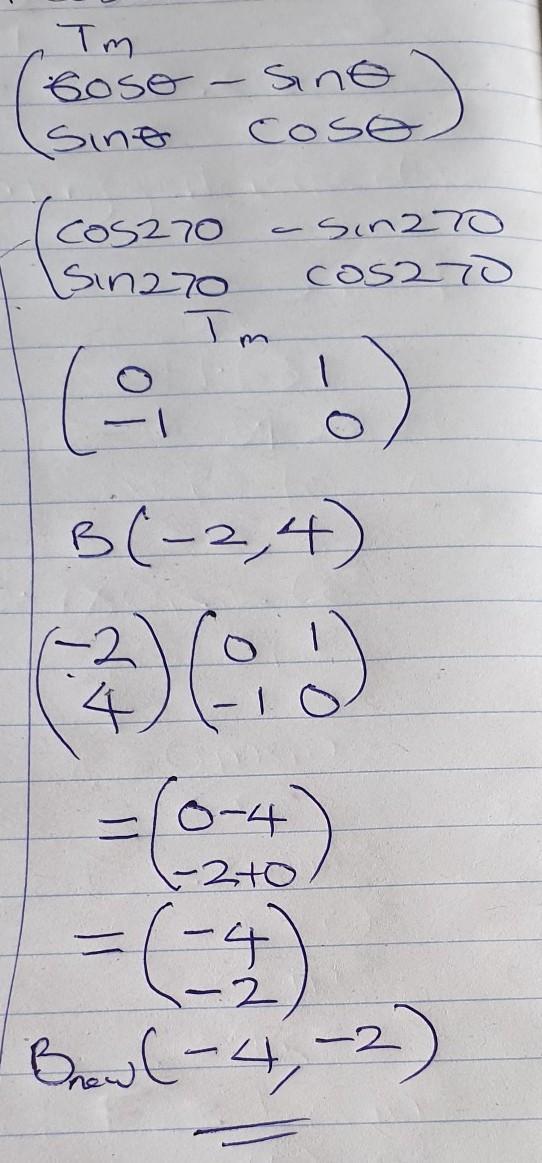 Tm
(cosθ - sinθ)
(sinθ cosθ)
(cos270 - sin270
(sin270 cos270
Tm
(0 1)
(-1 0)
B(-2,4)
(-2) (0 1)
(4) (-1 0)
= (0-4)
(-2+0)
= (-4)
(-2)
Bnew(-4,-2)